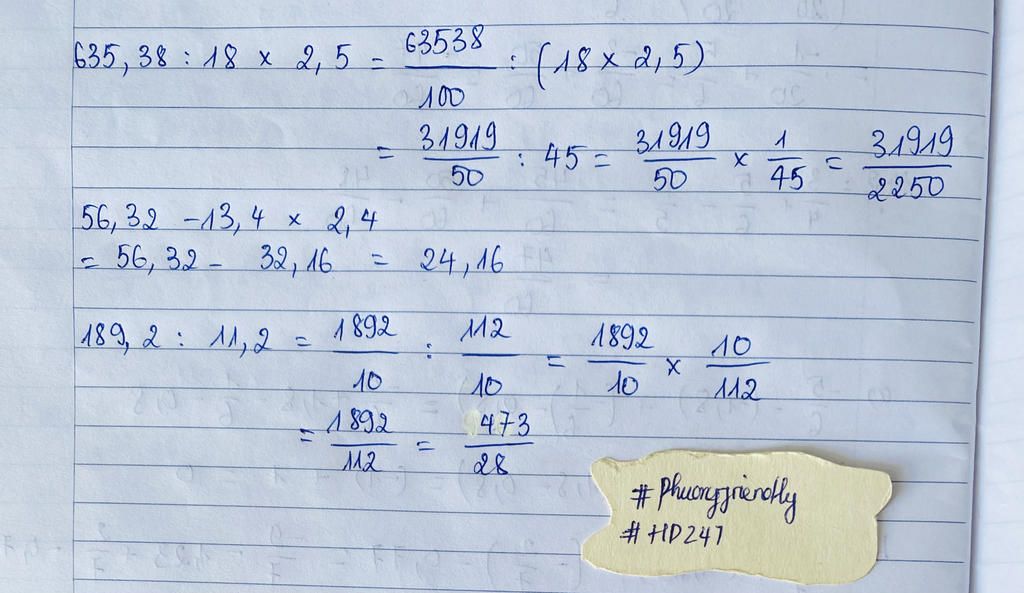 635,38 : 18 × 2,5 = 63538/100 : (18 × 2,5)
= 31919/50 : 45 = 31919/50 × 1/45 = 31919/2250
56,32 - 13,4 × 2,4
= 56,32 - 32,16 = 24,16
189,2 : 11,2 = 1892/10 : 112/10 = 1892/10 × 10/112
= 1892/112 = 473/28
#Phuongfriendly
#HD247